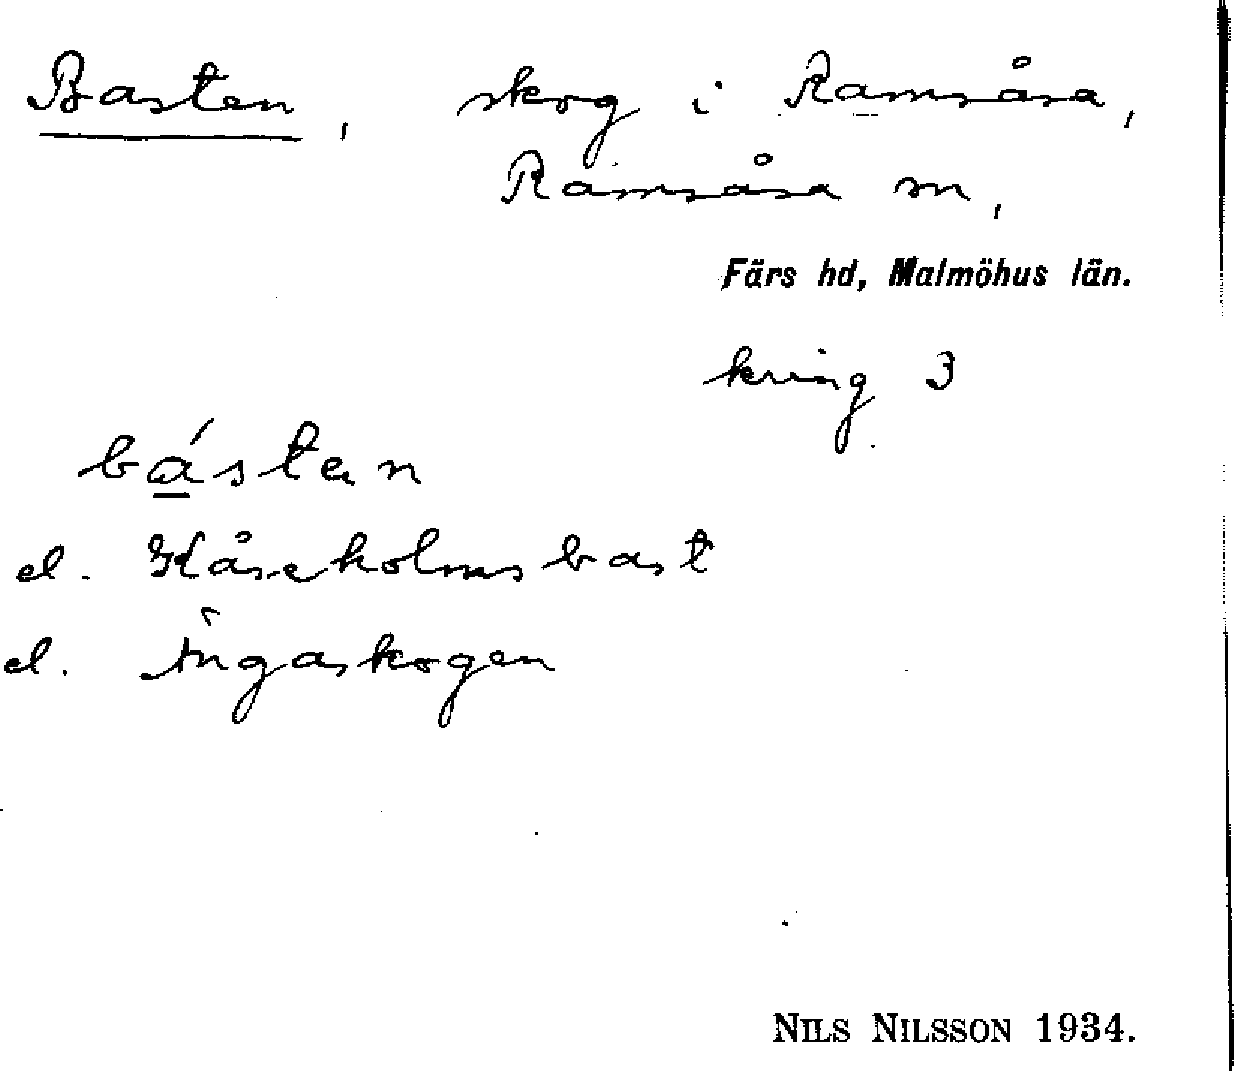 Basten, skog i Ramsåsa,
Ramsåsa sn,
Färs hd, Malmöhus län.
kring 3
bástan
el. Kåseholmsbast
el. Ängaskogen
NILS NILSSON 1934.